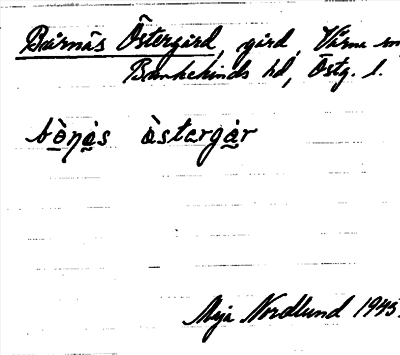 Bårnäs Östergård, gård, Vårna sn
Bankekinds hd, Östg. l.
bò̱ŋȧ̱s östargȧ̱r
Maja Nordlund 1945.